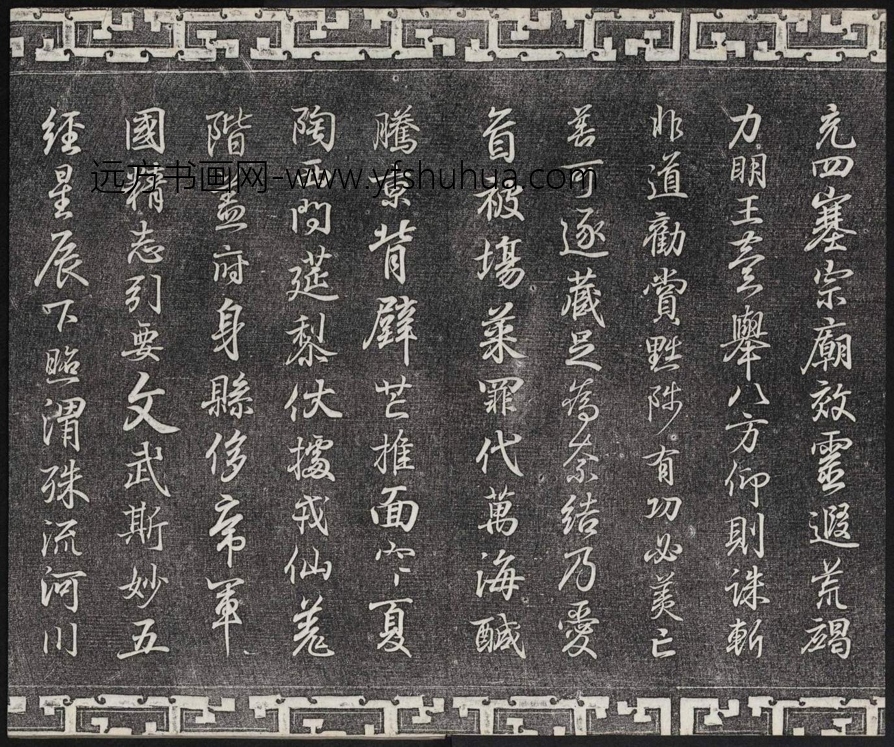 充四塞宗廟效靈遐荒竭
力明王臺舉八方仰則誅斬
非道勸賞黜陟有功必美己
善可逐藏足為奈結乃愛
首被場菜罪代萬海鹹
騰景背壁芒推面下夏
陶問筵黎伏據戎仙羌
階盖府身縣侈帝軍
國精志引要文武斯妙五
經星辰下照渭殊流河川
远方书画网-www.yfshuhua.com